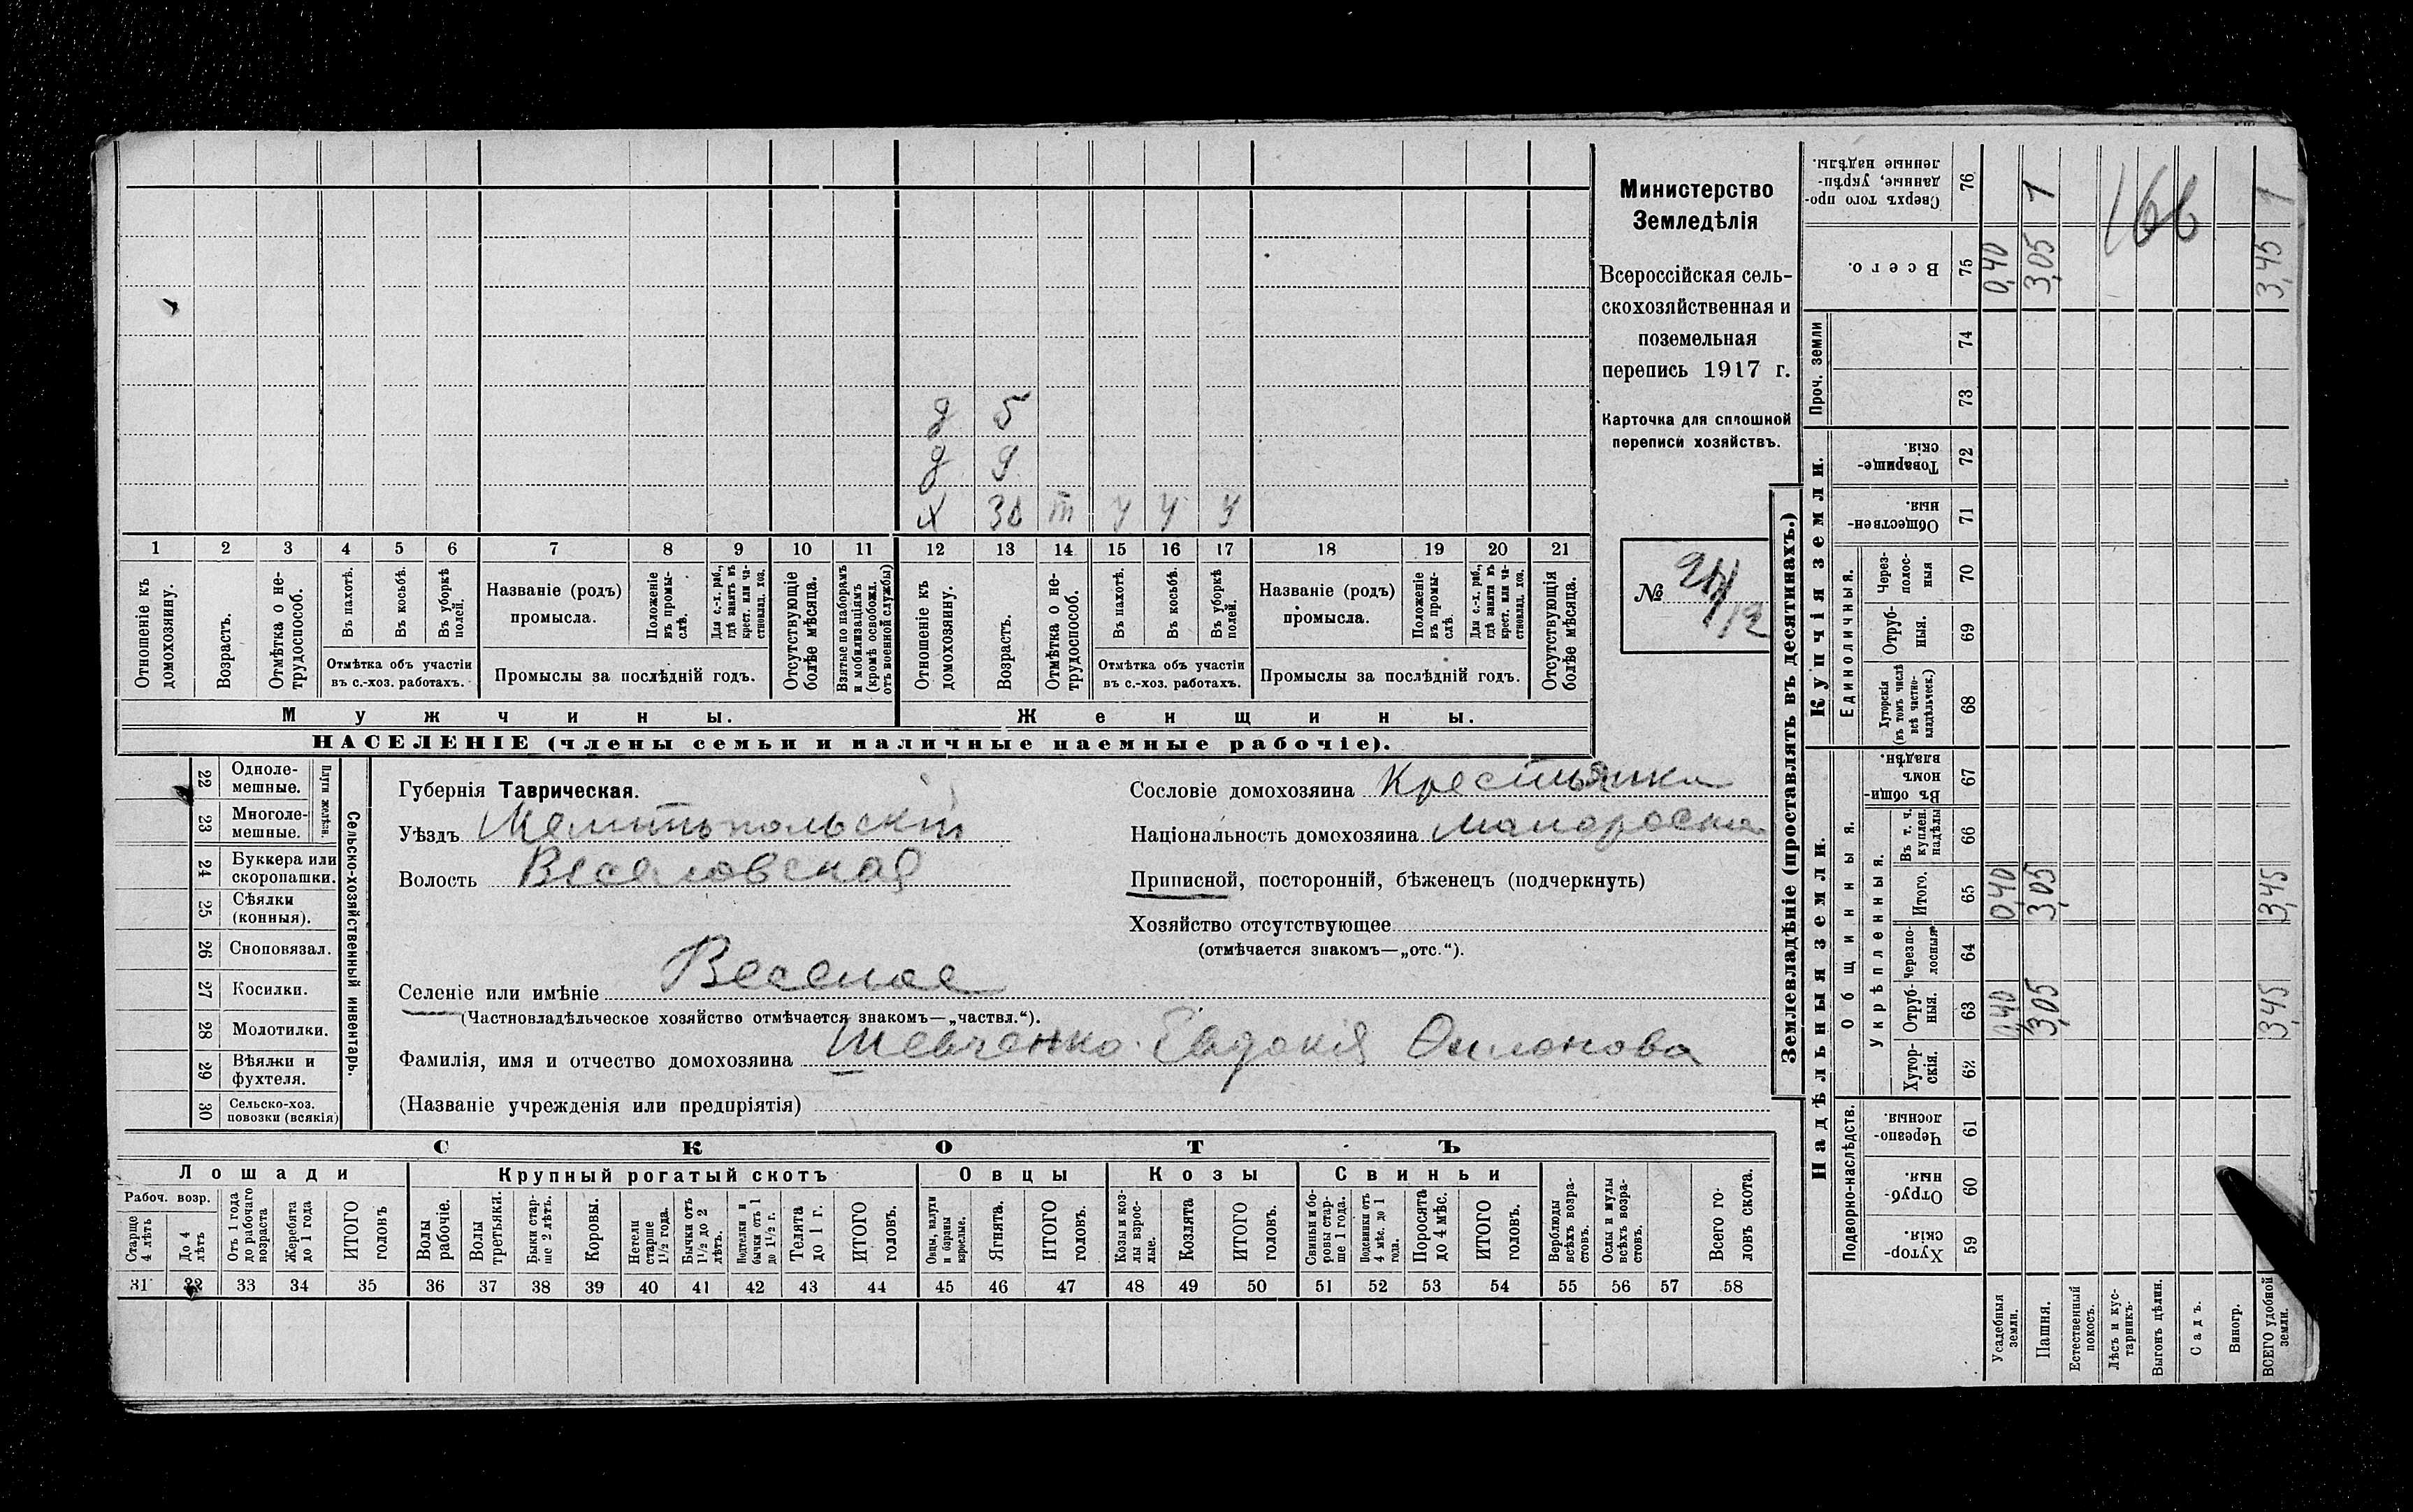 Министерство
Земледѣлія
Всероссійская сель-
скохозяйственная и
поземельная
перепись 1917 г.
Карточка для сплошной
переписи хозяйствъ.
№
д 5
д 9
х 30 т у у у
1 2 3 4 5 6 7 8 9 10 11 12 13 14 15 16 17 18 19 20 21
Отношеніе къ домохозяину.
Возрастъ.
Отмѣтка о не-трудоспособ.
Въ пахотѣ.
Въ косьбѣ.
Въ уборкѣ полей.
Отмѣтка объ участіи
въ с.-хоз. работахъ.
Названіе (родъ)
промысла.
Положеніе въ промы-слѣ.
Для с.-х. раб., гдѣ занятъ въ крест. или ча-стновлад. хоз.
Промыслы за послѣдній годъ.
Отсутствующіе болѣе мѣсяца.
Взятые по наборамъ и мобилизаціямъ (кромѣ освобожд. отъ военной службы)
Отношеніе къ домохозяину.
Возрастъ.
Отмѣтка о не-трудоспособ.
Въ пахотѣ.
Въ косьбѣ.
Въ уборкѣ полей.
Отмѣтка объ участіи
въ с.-хоз. работахъ.
Названіе (родъ)
промысла.
Положеніе въ промы-слѣ.
Для с.-х. раб., гдѣ занята въ крест. или ча-стновлад. хоз.
Промыслы за послѣдній годъ.
Отсутствующія болѣе мѣсяца.
Мужчины.
Женщины.
НАСЕЛЕНІЕ (члены семьи и наличные наемные рабочіе).
22 Одноле-мешные.
23 Многоле-мешные.
Плуги желѣзн.
24 Буккера или скоропашки.
25 Сѣялки (конныя).
26 Сноповязал.
27 Косилки.
28 Молотилки.
29 Вѣялки и фухтеля.
30 Сельско-хоз. повозки (всякія)
Сельско-хозяйственный инвентарь.
Губернія Таврическая.
Уѣздъ Мелитопольскій
Волость Веселовская
Селеніе или имѣніе Веселое
(Частновладѣльческое хозяйство отмѣчается знакомъ—„частвл.“).
Фамилія, имя и отчество домохозяина Шевченко Евдокія Филонова
(Названіе учрежденія или предпріятія)
Сословіе домохозяина Крестьянка
Національность домохозяина Малороска
Приписной, посторонній, бѣженецъ (подчеркнуть)
Хозяйство отсутствующее
(отмѣчается знакомъ—„отс.“).
СКОТЪ
Лошади
Крупный рогатый скотъ
Овцы
Козы
Свиньи
Рабоч. возр.
Старше 4 лѣтъ
До 4 лѣтъ
Отъ 1 года до рабочаго возраста
Жеребята до 1 года
ИТОГО головъ
Волы рабочіе.
Волы третьяки.
Быки стар-ше 2 лѣтъ.
Коровы.
Нетели старше 1½ года.
Бычки отъ 1½ до 2 лѣтъ.
Подтелки и бычки отъ 1 до 1½ г.
Телята до 1 г.
ИТОГО головъ.
Овцы, валухи и бараны взрослые.
Ягнята.
ИТОГО головъ.
Козы и коз-лы взрос-лые.
Козлята
ИТОГО головъ.
Свиньи и бо-ровы стар-ше 1 года.
Подсвинки отъ 4 мѣс. до 1 года.
Поросята до 4 мѣс.
ИТОГО головъ.
Верблюды всѣхъ возра-стовъ.
Ослы и мулы всѣхъ возра-стовъ.
Всего го-ловъ скота.
31 32 33 34 35 36 37 38 39 40 41 42 43 44 45 46 47 48 49 50 51 52 53 54 55 56 57 58
Землевладѣніе (проставлять въ десятинахъ.)
Надѣльныя земли.
Купчія земли.
Проч. земли
Подворно-наслѣдств.
Общинныя.
Укрѣпленныя.
Единоличныя.
Хутор-скія. 59
Отруб-ныя. 60
Черезпо-лосныя. 61
Хутор-скія. 62
Отруб-ныя. 63 0,40 3,05 3,45
Черезпо-лосныя 64
Итого. 65 0,40 3,05 3,45
Въ т. ч. куплен. надѣлы 66
Въ общи-номъ владѣн. 67
Хуторскія (въ томъ числѣ всѣ частно-владѣльческ.) 68
Отруб-ныя. 69
Через-полос-ныя 70
Обществен-ныя. 71
Товарище-скія. 72
73
74
Всего. 75 0,40 3,05 3,45
Сверхъ того про-данные, укрѣп-ленные надѣлы. 76 1 1
166
Усадебныя земли.
Пашня.
Естественный покосъ.
Лѣсъ и кус-тарникъ.
Выгонъ цѣлин.
Садъ.
Виногр.
ВСЕГО удобной земли.